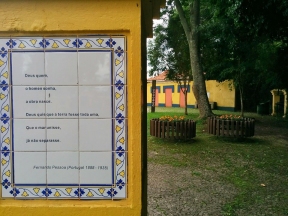 Deus quere,
o homem sonha,
a obra nasce.
Deus quis que a terra fosse toda uma,
Que o mar unisse,
já não separasse.
Fernando Pessoa (Portugal 1888 - 1935)